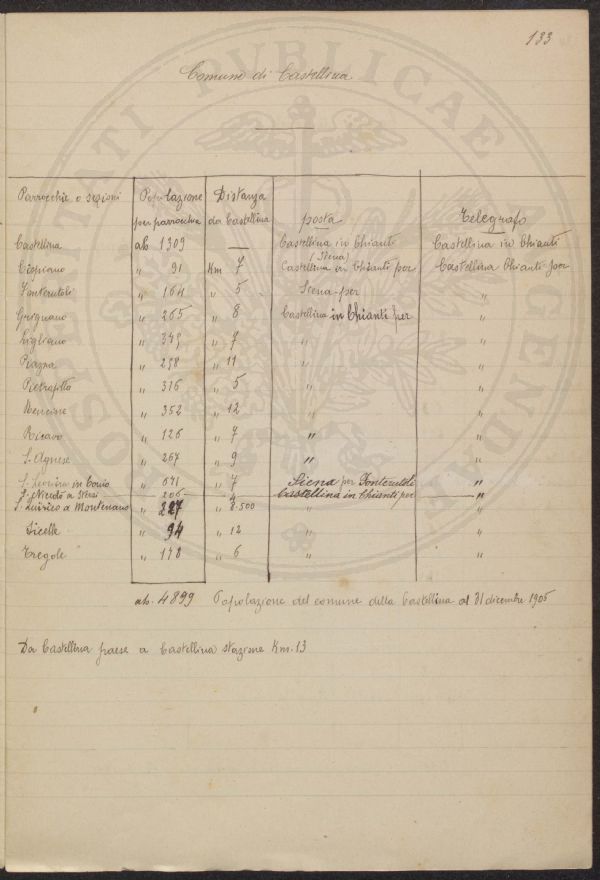 133
HOSPITATI PUBLICAE AUGENDAE
Comune di Castellina
Parrocchie o sezioni Popolazione per parrocchia Distanza da Castellina posta Telegrafo
Castellina ab. 1309 — Castellina in Chianti (Siena) Castellina in Chianti
Cispiano " 91 Km 7 Castellina in Chianti per Castellina Chianti per
Fonterutoli " 164 " 5 Siena per "
Grignano " 265 " 8 Castellina in Chianti per "
Ligliano " 345 " 7 " "
Piazza " 258 " 11 " "
Pietrafitta " 316 " 5 " "
Rencine " 352 " 12 " "
Ricavo " 126 " 7 " "
S. Agnese " 267 " 9 " "
S. Leonino in Conio " 671 " 7 Siena per Fonterutoli "
S. Niccolò a Sterzi 206 4 Castellina in Chianti per "
S. Quirico a Montenano " 227 " 8.500 " "
Sicelle " 94 " 12 " "
Tregole " 178 " 6 " "
ab. 4899 Popolazione del comune della Castellina al 31 dicembre 1905
Da Castellina paese a Castellina stazione Km. 13